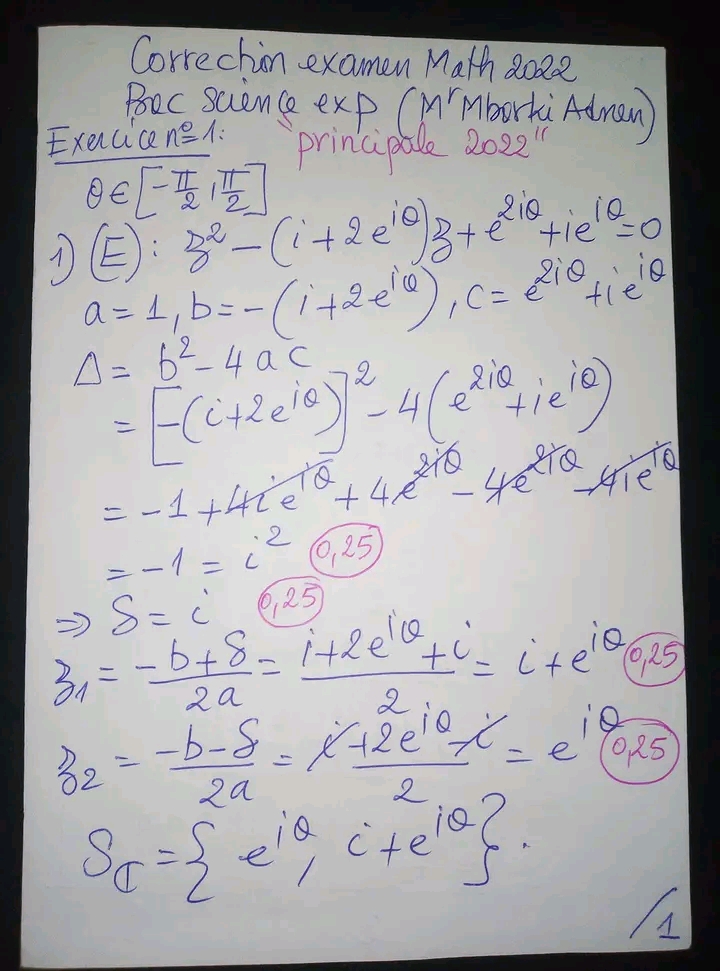 Correction examen Math 2022
Bac Science exp (Mr Mbarki Adnen)
Exercice n°=1: "principale 2022"
θ∈[-π/2, π/2]
1) (E): z² - (i+2e^{iθ})z + e^{2iθ} + ie^{iθ} = 0
a = 1, b = -(i+2e^{iθ}), c = e^{2iθ} + ie^{iθ}
Δ = b² - 4ac
= [-(i+2e^{iθ})]² - 4(e^{2iθ} + ie^{iθ})
= -1 + 4ie^{iθ} + 4e^{2iθ} - 4e^{2iθ} - 4ie^{iθ}
= -1 = i² 0,25
⇒ δ = i 0,25
z₁ = (-b+δ)/2a = (i+2e^{iθ}+i)/2 = i + e^{iθ} 0,25
z₂ = (-b-δ)/2a = (i+2e^{iθ}-i)/2 = e^{iθ} 0,25
S_ℂ = { e^{iθ}, i+e^{iθ} }.
/1